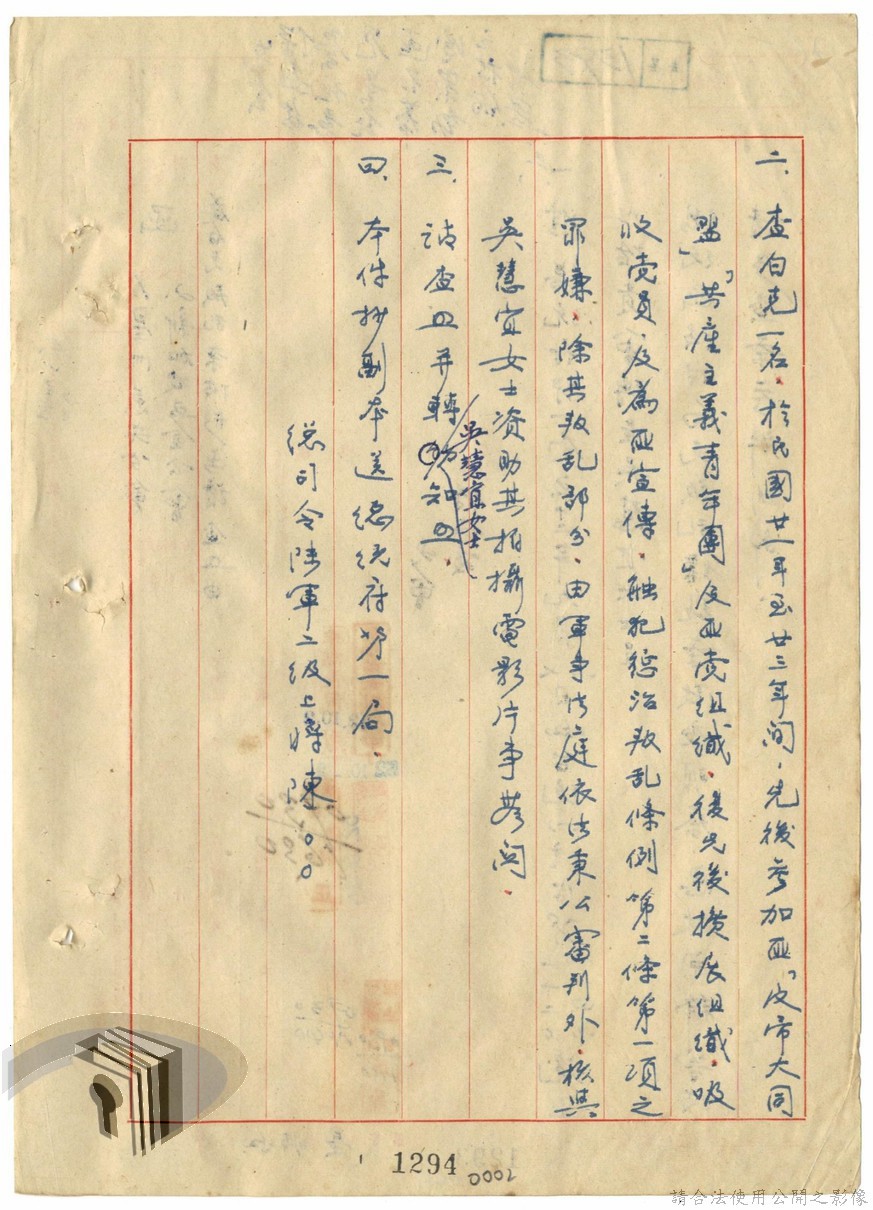 二、查白克一名、於民國廿一年至廿三年间、先後參加匪「反帝大同
盟」「共產主義青年團」及匪党组織、後先後擴展组織、吸
收党員、及為匪宣傳、触犯惩治叛乱條例第二條第一項之
罪嫌、除其叛乱部分、由軍事法庭依法秉公審判外、核與
吳慧宜女士资助其拍攝電影片事無関、
三、請查照并轉知照、
吳慧宜女士
四、本件抄副本送總统府第一局、
總司令陆軍二级上將陳○○
1294
0002
請合法使用公開之影像